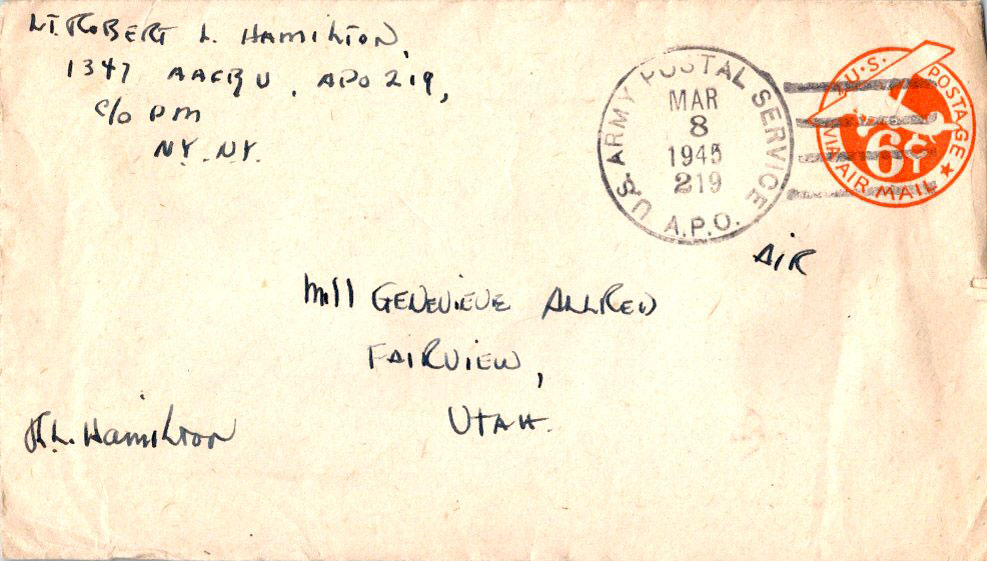 LT. ROBERT L. HAMILTON,
1347 AAFBU, APO 219,
c/o PM
NY. NY.
U.S. ARMY POSTAL SERVICE
MAR
8
1945
219
A.P.O.
U.S. POSTAGE
6¢
VIA AIR MAIL
AIR
GENEVIEVE ALLRED
FAIRVIEW,
UTAH.
R.L. Hamilton